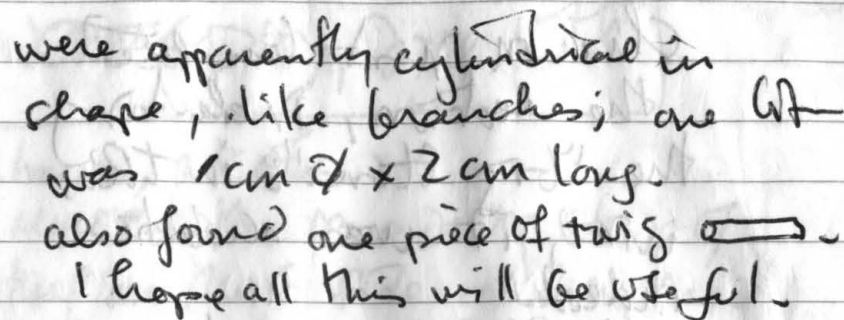 were apparently cylindrical in
shape, like branches; one bit
was 1cm ∅ × 2cm long.
also found one piece of twig .
I hope all this will be useful.